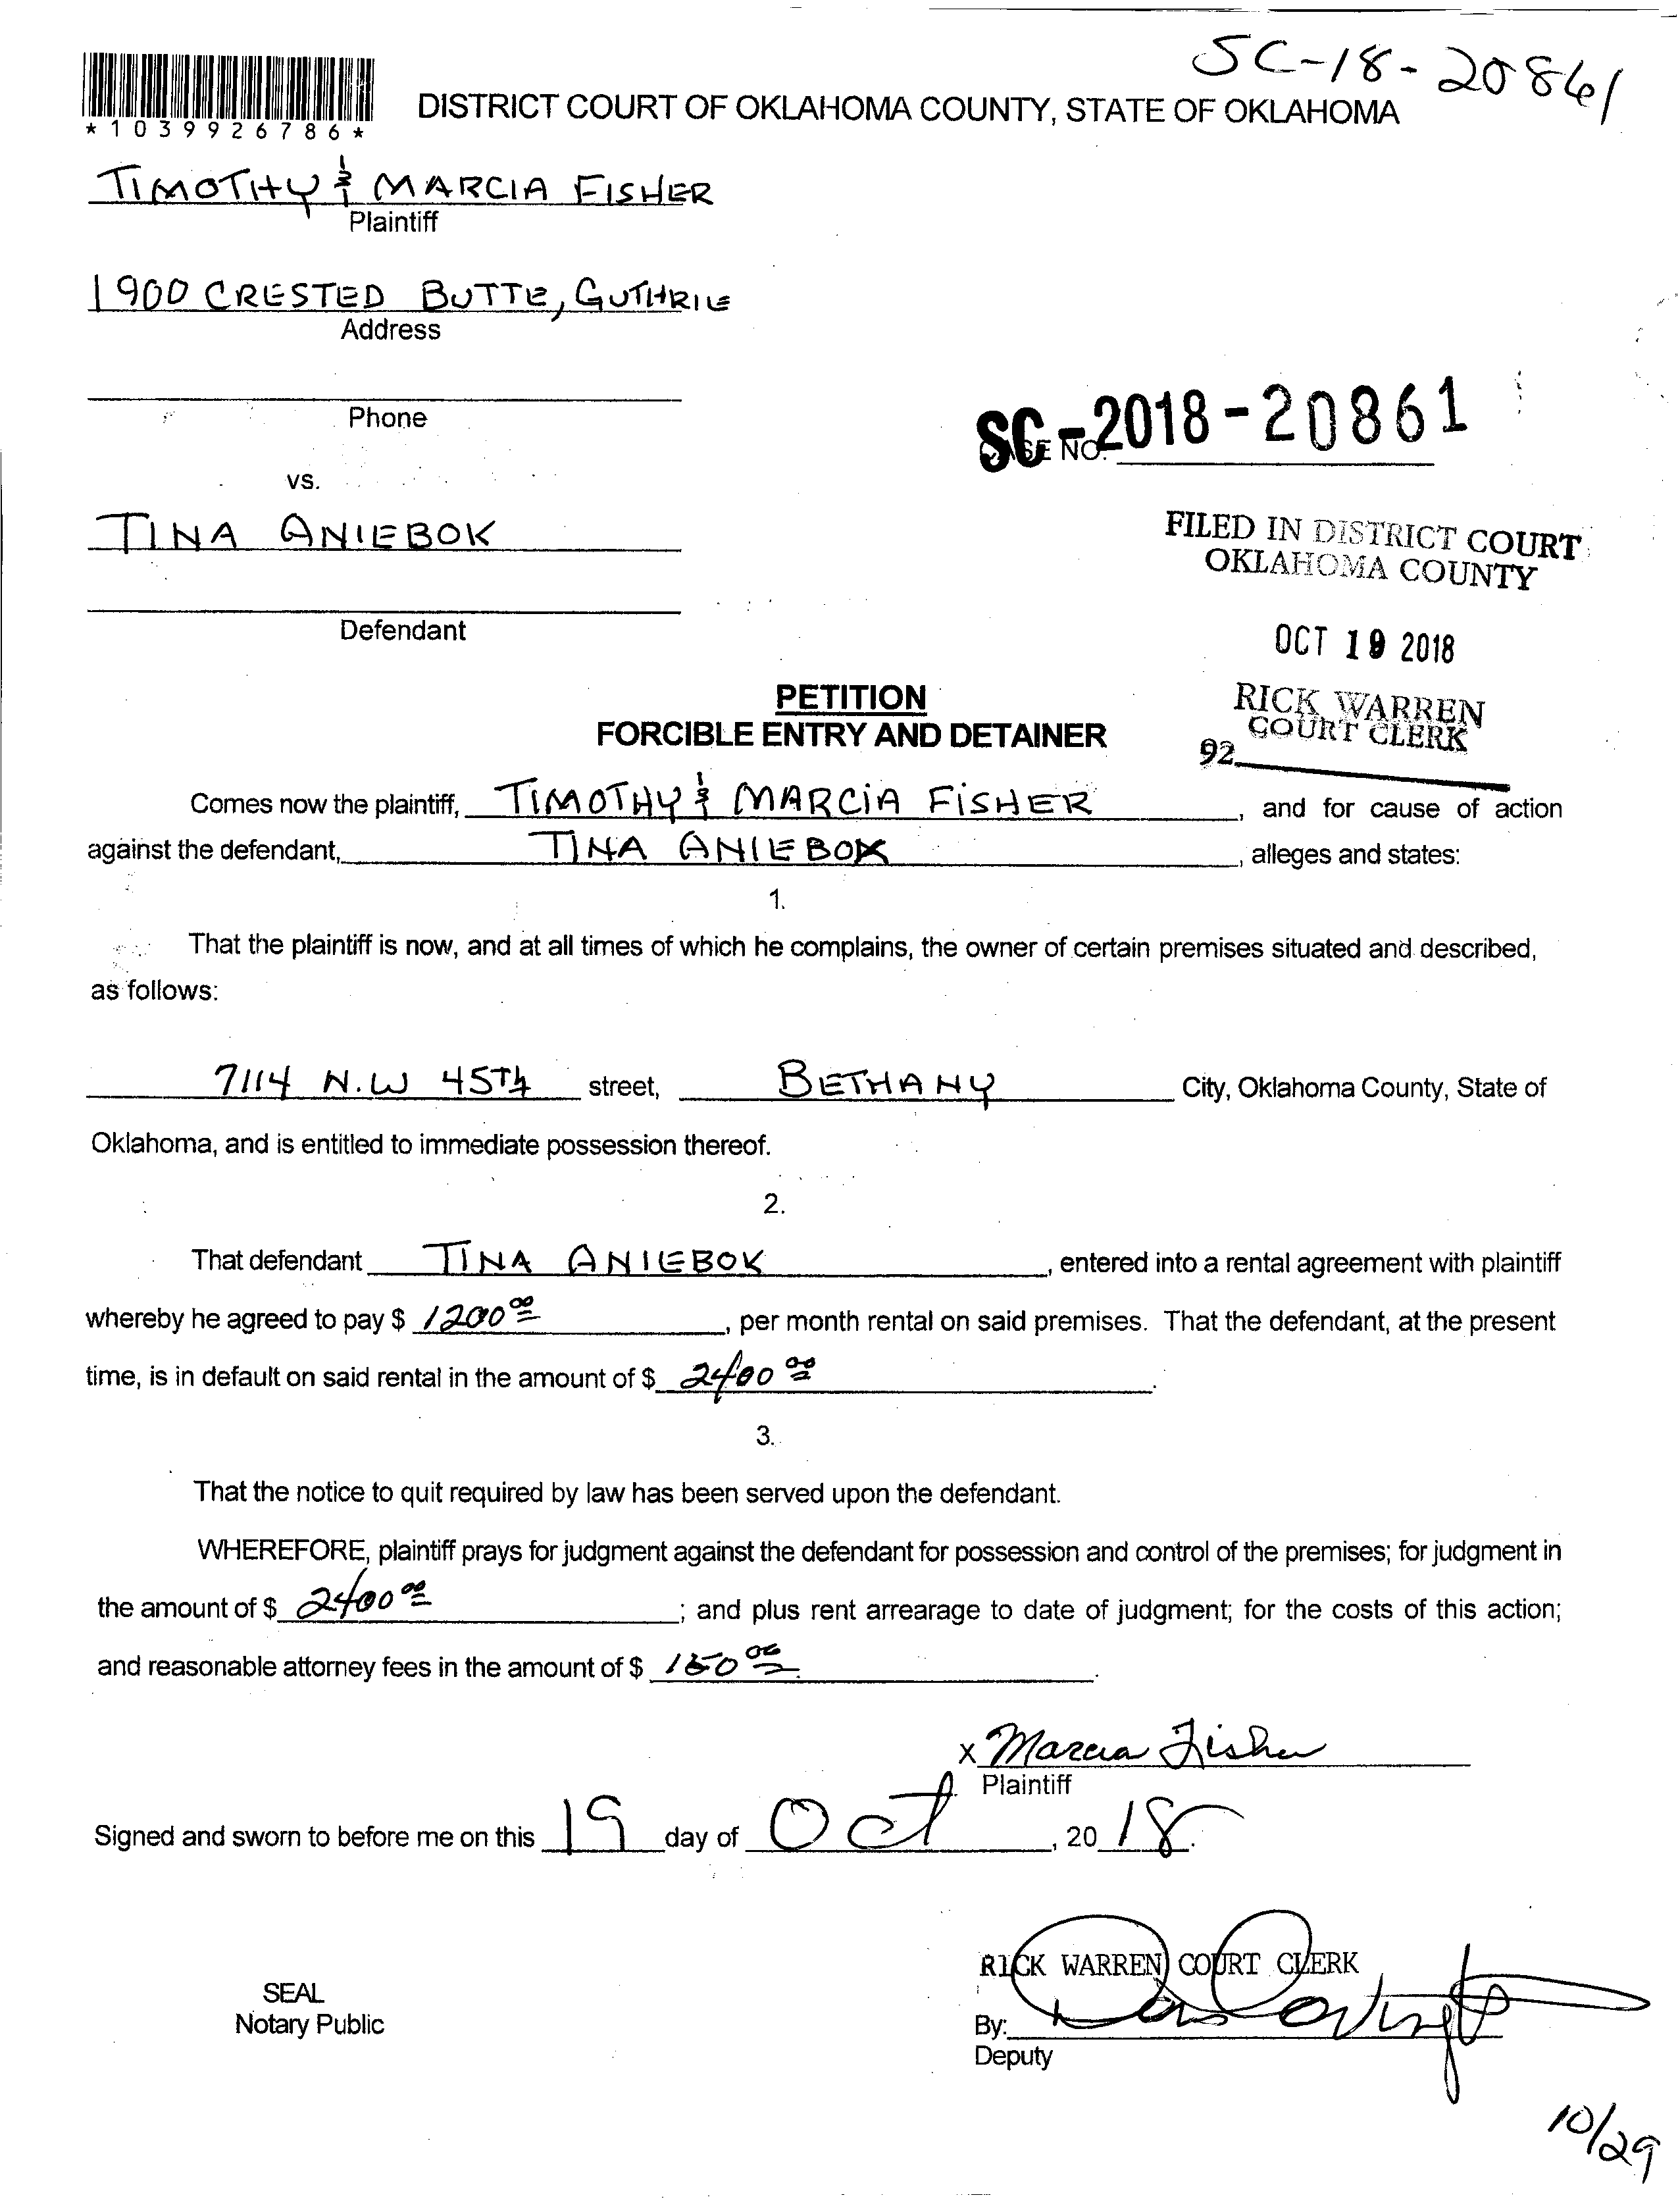 SC-18-20861
*1039926786*
DISTRICT COURT OF OKLAHOMA COUNTY, STATE OF OKLAHOMA
TIMOTHY & MARCIA FISHER
Plaintiff
1900 CRESTED BUTTE, GUTHRIE
Address
Phone
SC-2018-20861
CASE NO.
vs.
TINA ANIEBOK
FILED IN DISTRICT COURT
OKLAHOMA COUNTY
Defendant
OCT 19 2018
PETITION
RICK WARREN
FORCIBLE ENTRY AND DETAINER
COURT CLERK
92
Comes now the plaintiff, TIMOTHY & MARCIA FISHER, and for cause of action
against the defendant, TINA ANIEBOK, alleges and states:
1.
That the plaintiff is now, and at all times of which he complains, the owner of certain premises situated and described,
as follows:
7114 N.W 45TH street, BETHANY City, Oklahoma County, State of
Oklahoma, and is entitled to immediate possession thereof.
2.
That defendant TINA ANIEBOK, entered into a rental agreement with plaintiff
whereby he agreed to pay $ 1200 00, per month rental on said premises. That the defendant, at the present
time, is in default on said rental in the amount of $ 2400 00.
3.
That the notice to quit required by law has been served upon the defendant.
WHEREFORE, plaintiff prays for judgment against the defendant for possession and control of the premises; for judgment in
the amount of $ 2400 00; and plus rent arrearage to date of judgment; for the costs of this action;
and reasonable attorney fees in the amount of $ 150 00.
x Marcia Fisher
Plaintiff
Signed and sworn to before me on this 19 day of Oct, 2018.
RICK WARREN COURT CLERK
SEAL
Notary Public
By:
Deputy
10/29